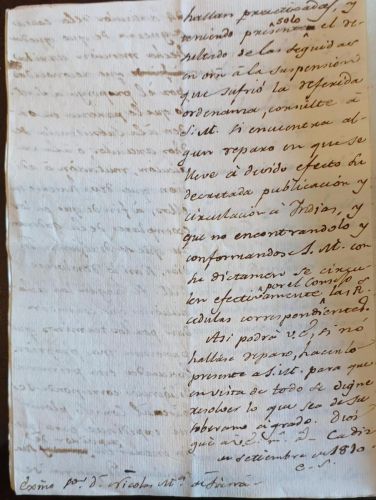 hallan practicadas, y
teniendo presente solo el re-
sultado de las seguidas
en orn à la suspension
que sufrió la referida
ordenanza, consulte à
S. M. si encuentra al-
gun reparo en que se
lleve à devido efecto su
decretada publicacion y
circulacion à Yndias, y
que no encontrandolo y
conformandose S. M. con
su dictamen se circu-
len efectivamente por el Consejo las R.
cedulas correspondientes.
Asi podrá V. E., si no
hallase reparo, hacerlo
presente a S. M. para que
en vista de todo se digne
resolver lo que sea de su
soberano agrado. Dios
gue a V. E. m. a. Cadiz
en setiembre de 1810
E. S.
Exmo Sor. Dn. Nicolas Ma. de Sierra.